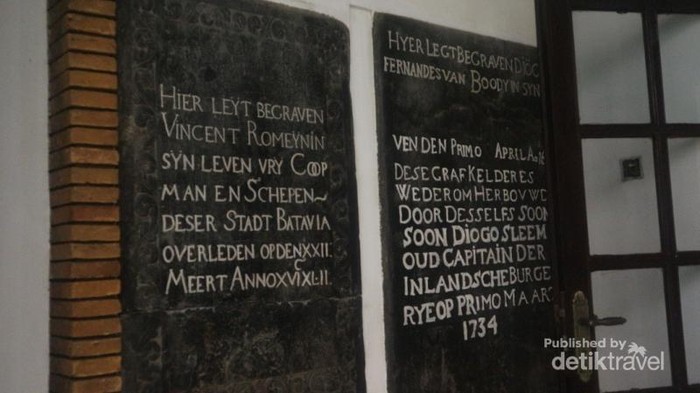 HIER LEYT BEGRAVEN
VINCENT ROMEYNIN
SYN LEVEN VRY COOP
MAN EN SCHEPEN~
DESER STADT BATAVIA
OVERLEDEN OPDENXXII
MEERT ANNOXVIXLII
HYER LEGTBEGRAVENDIOG
FERNANDESVAN BOODYINSYN
VENDEN PRIMO APRILA
DESEGRAFKELDERES
WEDEROMHERBOVWD
DOORDESSELFSSOON
SOONDIOGOSLEEM
OUDCAPITAINDER
INLANDSCHEBURGE
RYEOPPRIMOMAAR
1734
Published by
detiktravel